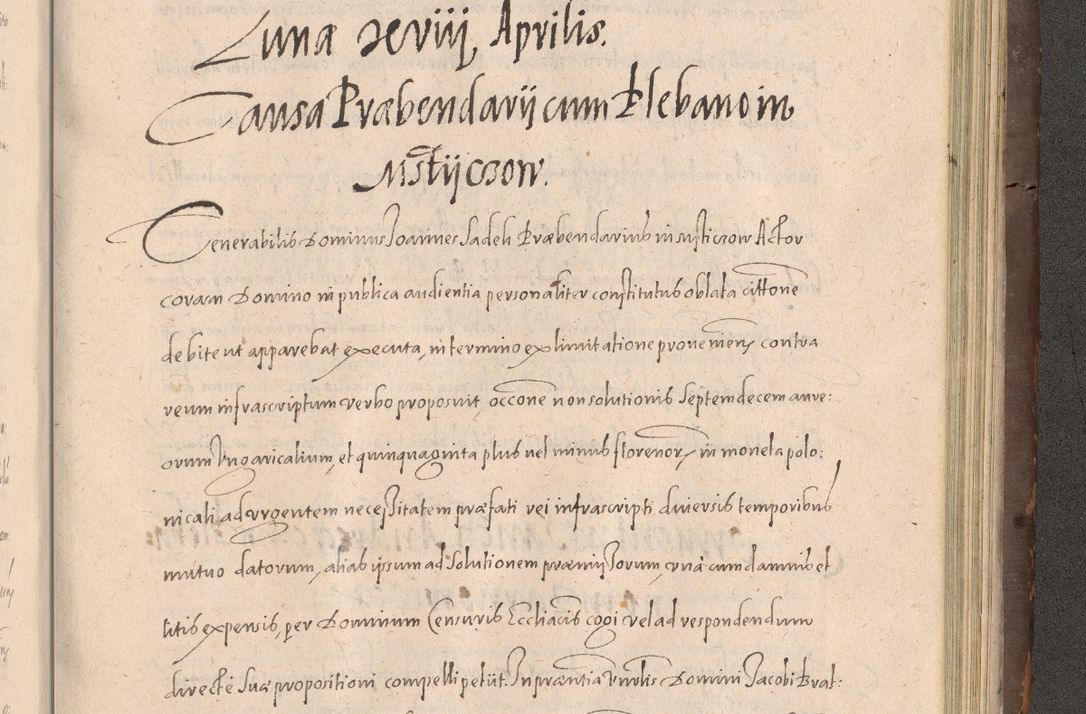 Lunæ xviij Aprilis.
Causa Præbendarij cum Plebano in
Mstijczow.
Venerabilis Dominus Joannes Sadek Præbendarius in Msticzow Actor
coram Domino in publica audientia personaliter constitutus oblata cittõne
debite ut apparebat executa, in termino ex limitatione proveniens contra
reum infrascriptum verbo proposuit, occõne non solutionis Septemdecem aure:
orum Vngaricalium, et quinquaginta plus vel minus florenor, in moneta polo:
nicali ad vrgentem necessitatem præfati rei infrascripti diversis temporibus
mutuo datorum, alias ipsum ad Solutionem præmissorum, vna cum damnis et
litis expensis, per Dominum Censuris Eccliacis cogi vel ad respondendum
directe Suæ propositioni compelli petiit. In præntia Vnrlis Domini Jacobi Brat: